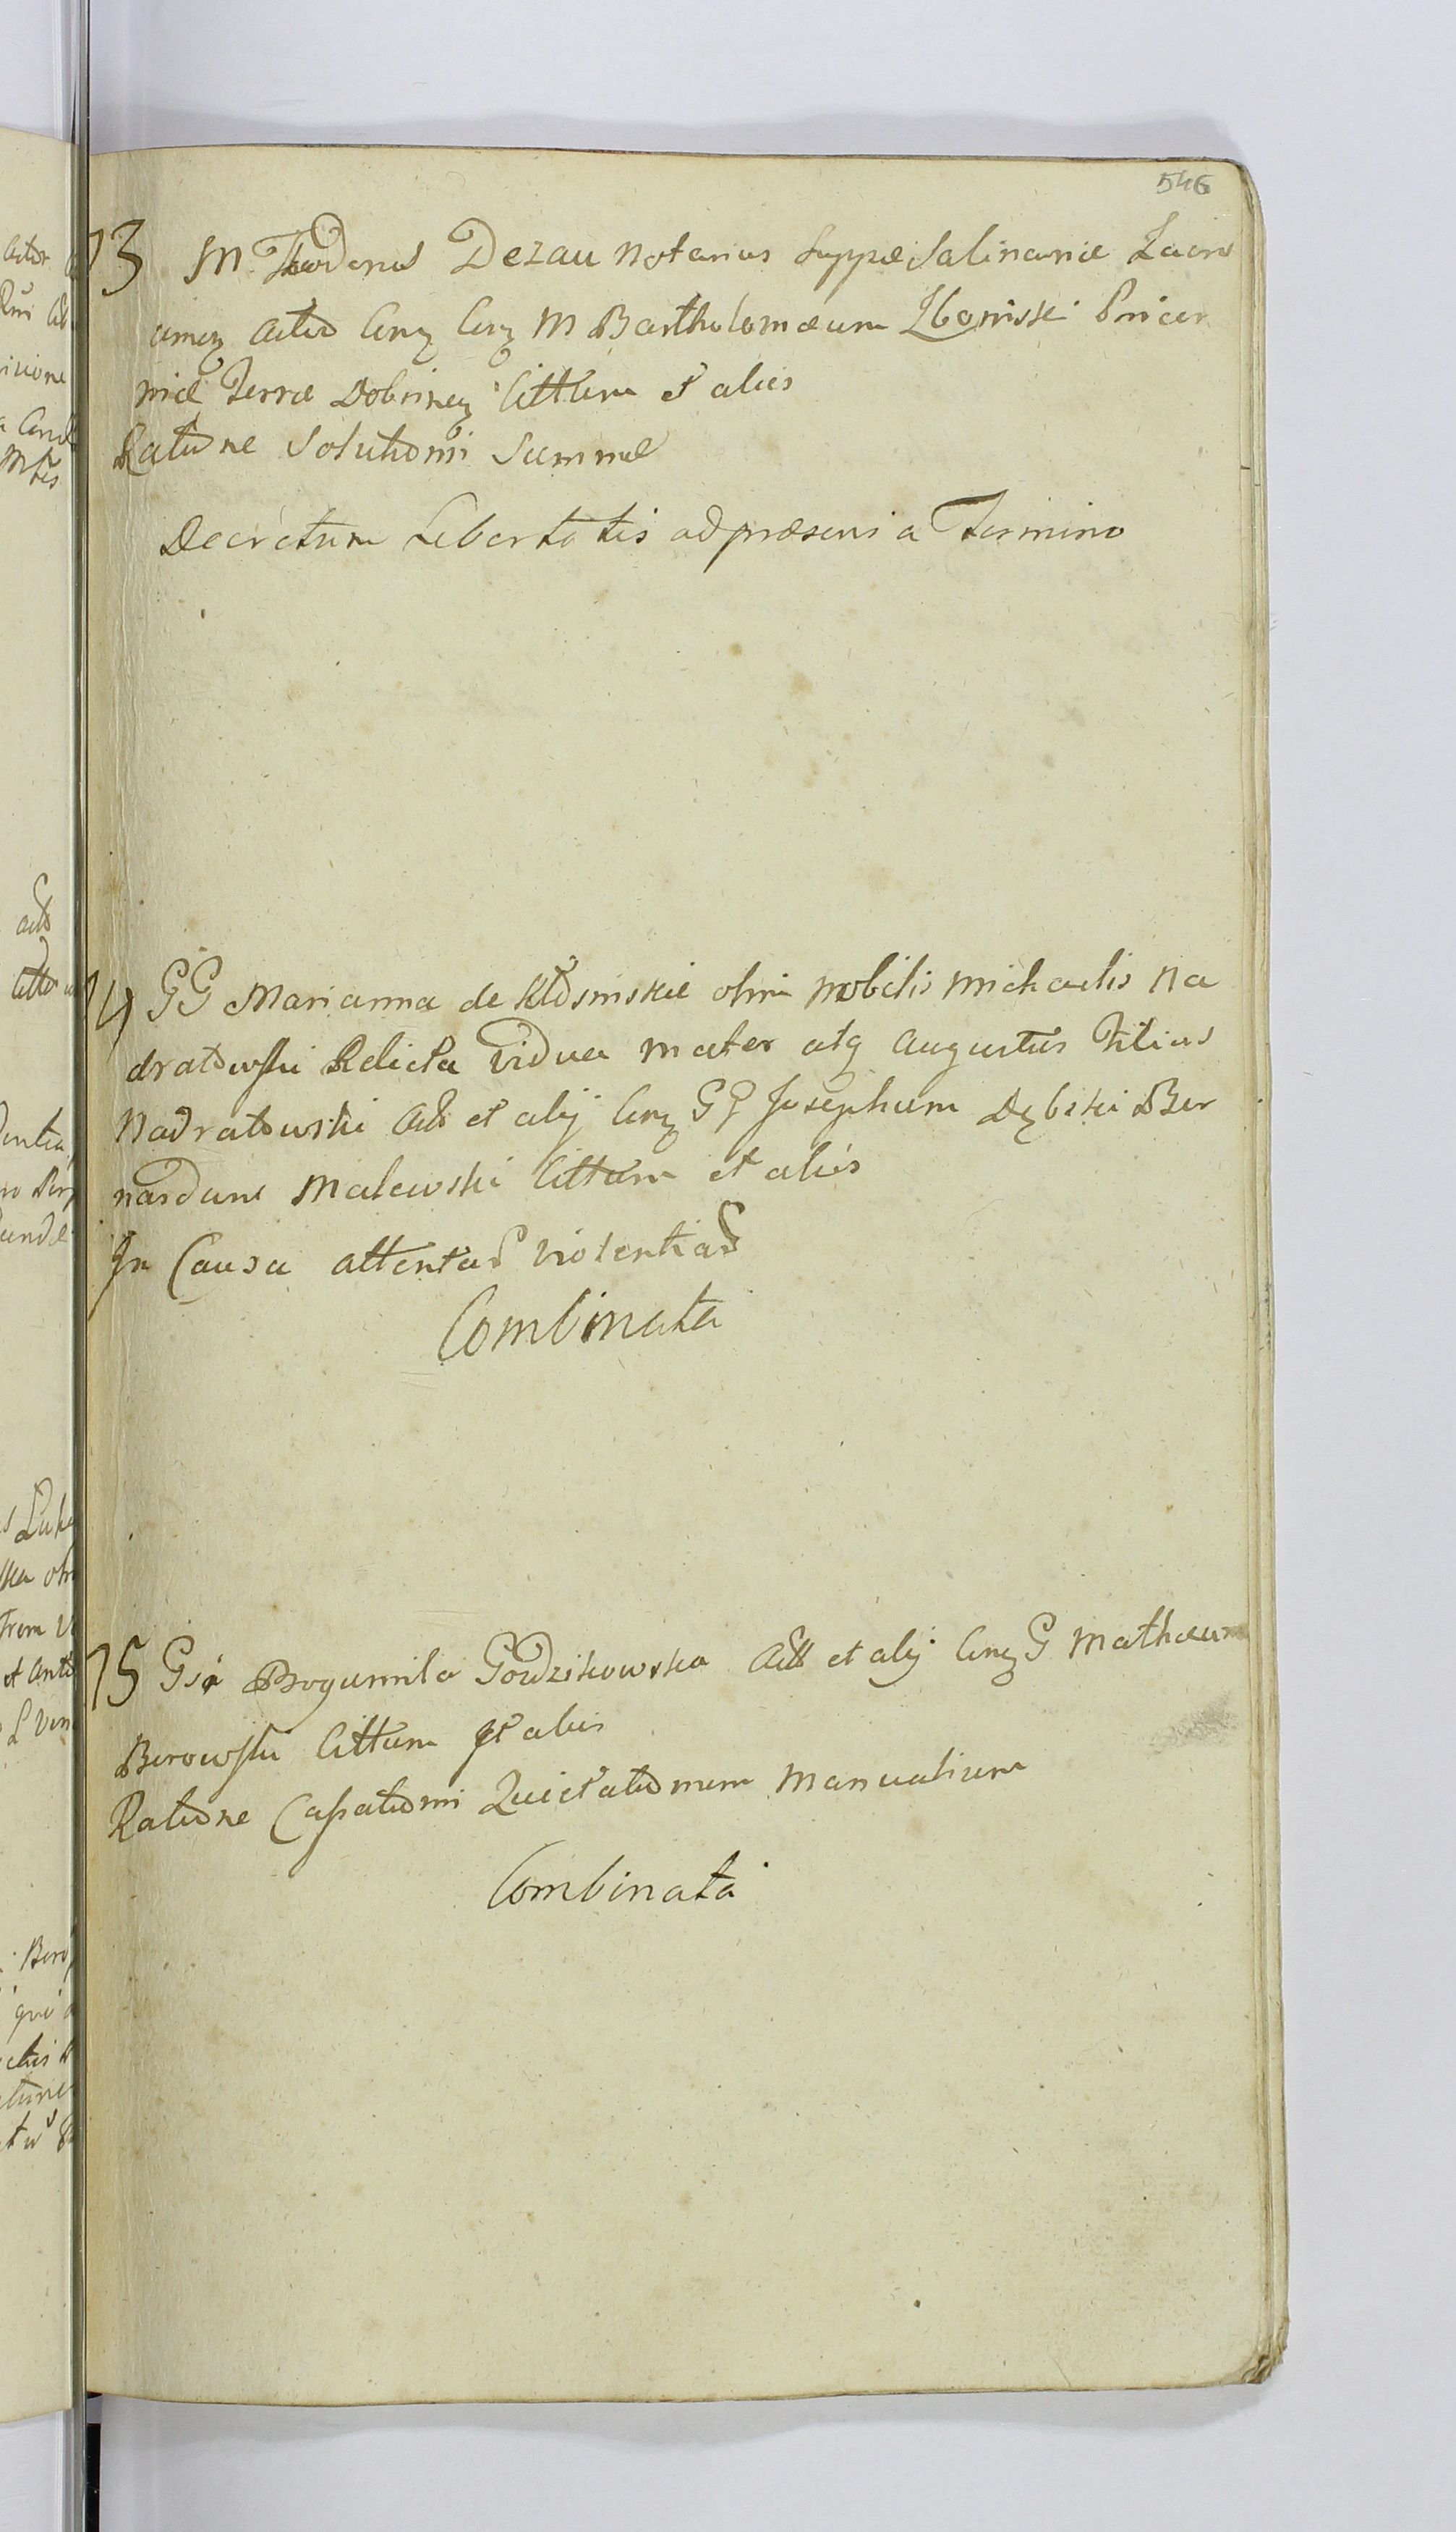 546
73 M Theodorus Dezau Notarius Suppæ Salinariæ Zacro
cimen Actor Con Con M Bartholomæum Zboinski Pincer
niæ Terræ Dobrinen Cittum et alios
Ratione Solutionis Summæ
Decretum Libertatis ad præsens a Termino
74 GG Marianna de Kłosinskie olim Nobilis Michaelis Na
dratowski Relicta Vidua Mater atq Augustus Filius
Nadratowski Act et alij Con GG Josephum Dębski Ber
nardum Malewski Cittum et alios
In Causa attentas violentias
Combinata
75 Gsa Bogumila Godzikowska Act et alij Con G Mathæum
Borowski Cittum et alios
Ratione Cassationis Quietationum Manualium
Combinata